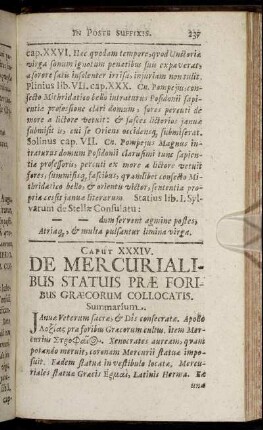 IN POSTE SUFFIXIS. 237
cap. XXVI. Hac quodam tempore, quod Unctoria
virga sonum ignotum penetibus suis expaverat,
a sorore satis insolenter irrisa, injuriam non tulit.
Plinius lib. VII. cap. XXX. Cn. Pompejus, con-
fecto Mithridatico bello intraturus Posidonii sapi-
entiæ professione clari domum, fores percuti de
more a lictore vetuit: & fasces lictorios januæ
submisit is, cui se Oriens occidensq; submiserat.
Solinus cap. VII. Cn. Pompejus Magnus in-
traturus domum Posidonii clarissimi tunc sapien-
tiæ professoris, percuti ex more a lictore vetuit
fores, summissisq; fascibus, quamlibet confecto Mi-
thridatico bello, & orientis victor, sententia pro-
pria cessit januæ literarum Statius lib. I. Syl-
varum de Stellæ Consulatu:
— dum fervent agmine postes,
Atriaq;, & multa pulsantur limina virga.
CAPUT XXXIV.
DE MERCURIALI-
BUS STATUIS PRÆ FORI-
BUS GRÆCORUM COLLOCATIS.
Summarium.
Janua Veterum sacra, & Dis consecrata. Apollo
Λοξίας præ foribus Græcorum ædium. Item Mer-
curius Στροφαῖος. Xenocrates auream, quam
potando meruit, coronam Mercurii statuæ impo-
suit. Eadem statuæ in vestibulo locatæ. Mercu-
riales statuæ Græcis Ερμαῖ, Latinis Hermæ. Ea